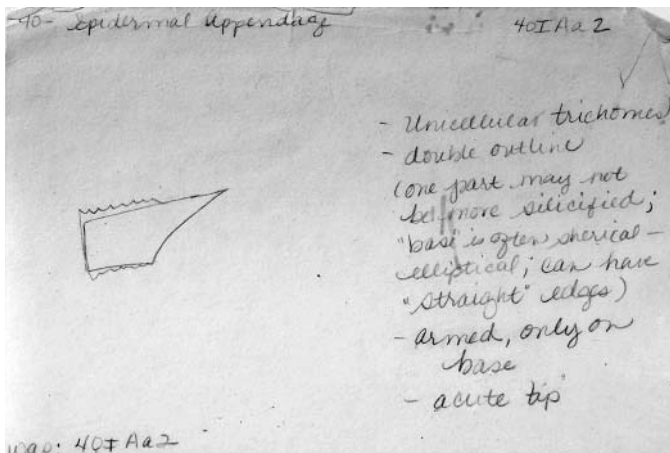 40- Epidermal Appendage 40IAa2
- Unicellular trichomes
- double outline
(one part may not
be more silicified;
"base" is often sherical-
elliptical; can have
"straight" edges)
- armed, only on
base
- acute tip
40IAa2